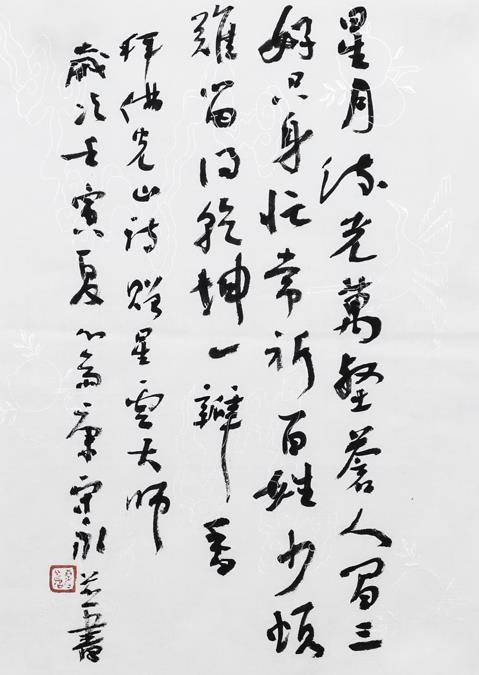 星月流光萬壑蒼人間三
好只身忙常祈百姓少煩
難留得乾坤一瓣香
拜佛光山詩贈星雲大師
歲次壬寅夏康守永并書